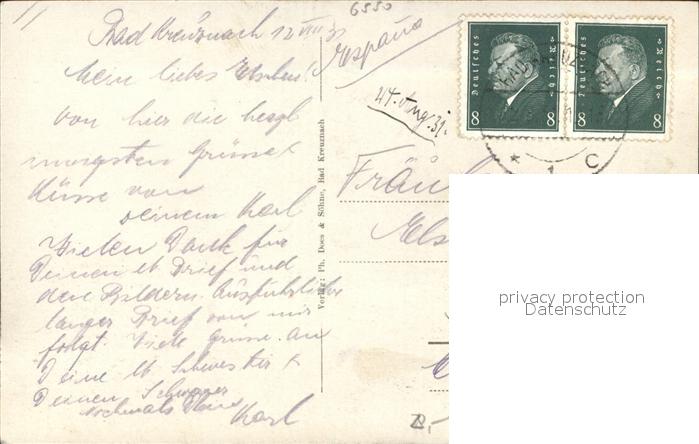 6550
Bad Kreuznach 12 VIII 31
España
Mein liebes Elschen!
24. Aug. 31.
von hier die herzl
morgsten Grüsse &
Küsse von
Deinem Karl
Vielen Dank für
Deinen lb Brief und
den Bildern. Ausführlicher
langer Brief von mir
folgt. Viele Grüsse an
Deine lb Schwester &
Deinen Schwager
nochmals Dein
Karl
Verlag: Ph. Does & Söhne, Bad Kreuznach
Deutsches Reich
8 8
Deutsches Reich
8 8
* 1 C
Fräul
Els
privacy protection
Datenschutz
2,-